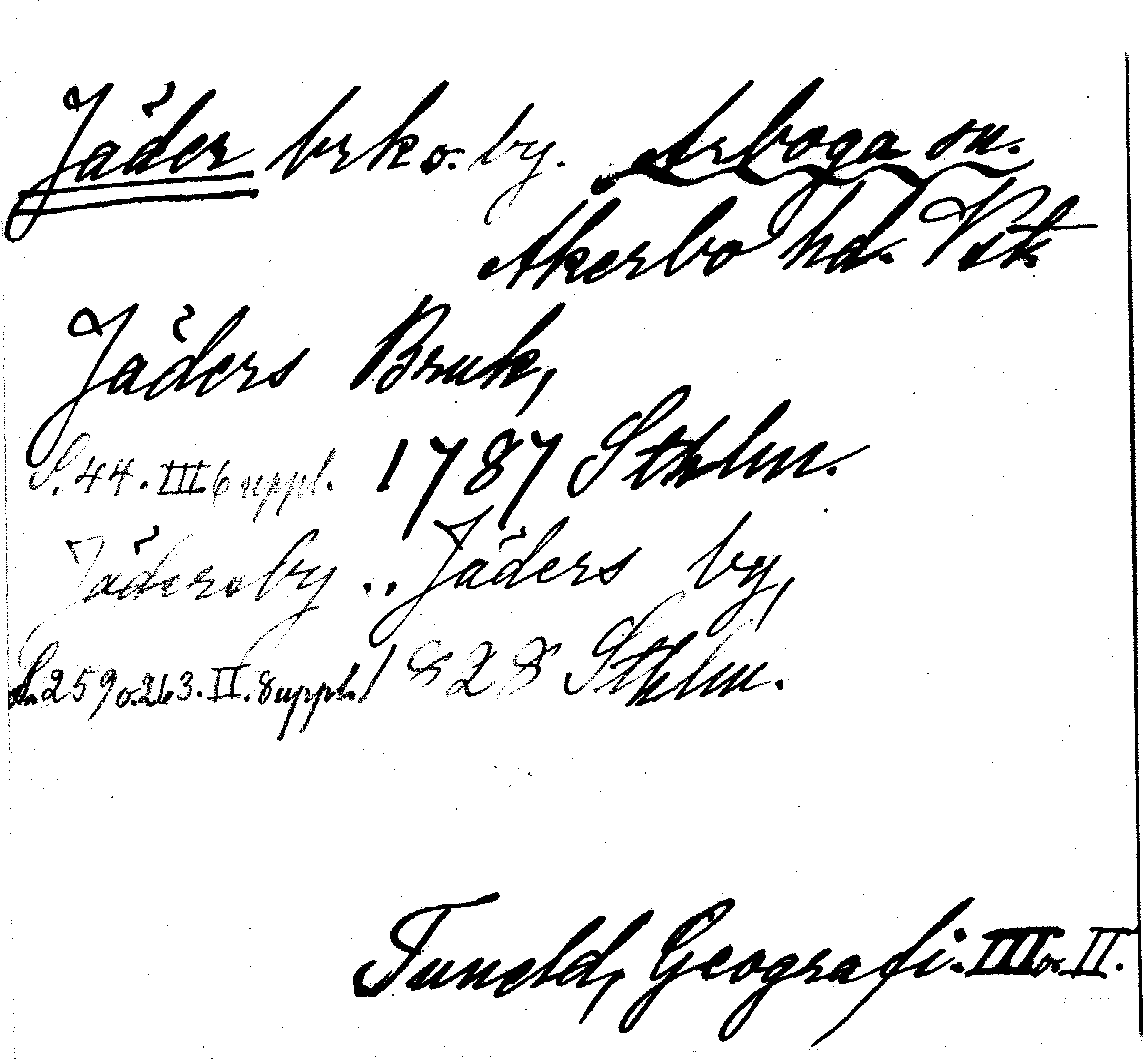 Jäder brk o. by. Arboga sn.
Akerbo hd. Vstm.
Jäders Bruk,
S. 44. III. 6 uppl. 1787 Sthlm.
Jädersby .. Jäders by,
S. 259 o. 263. II. 8 uppl. 1828 Sthlm.
Tuneld, Geografi. III o. II.